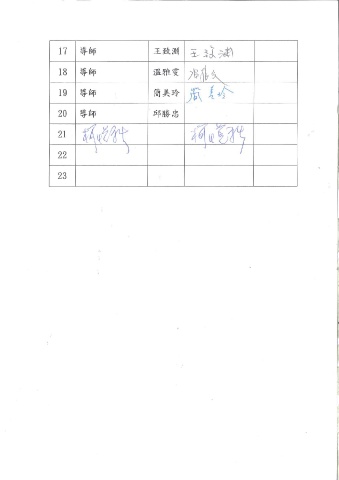 17 導師 王致淵 王致淵
18 導師 溫雅雯
19 導師 簡美玲 簡美玲
20 導師 邱勝忠
21
22
23